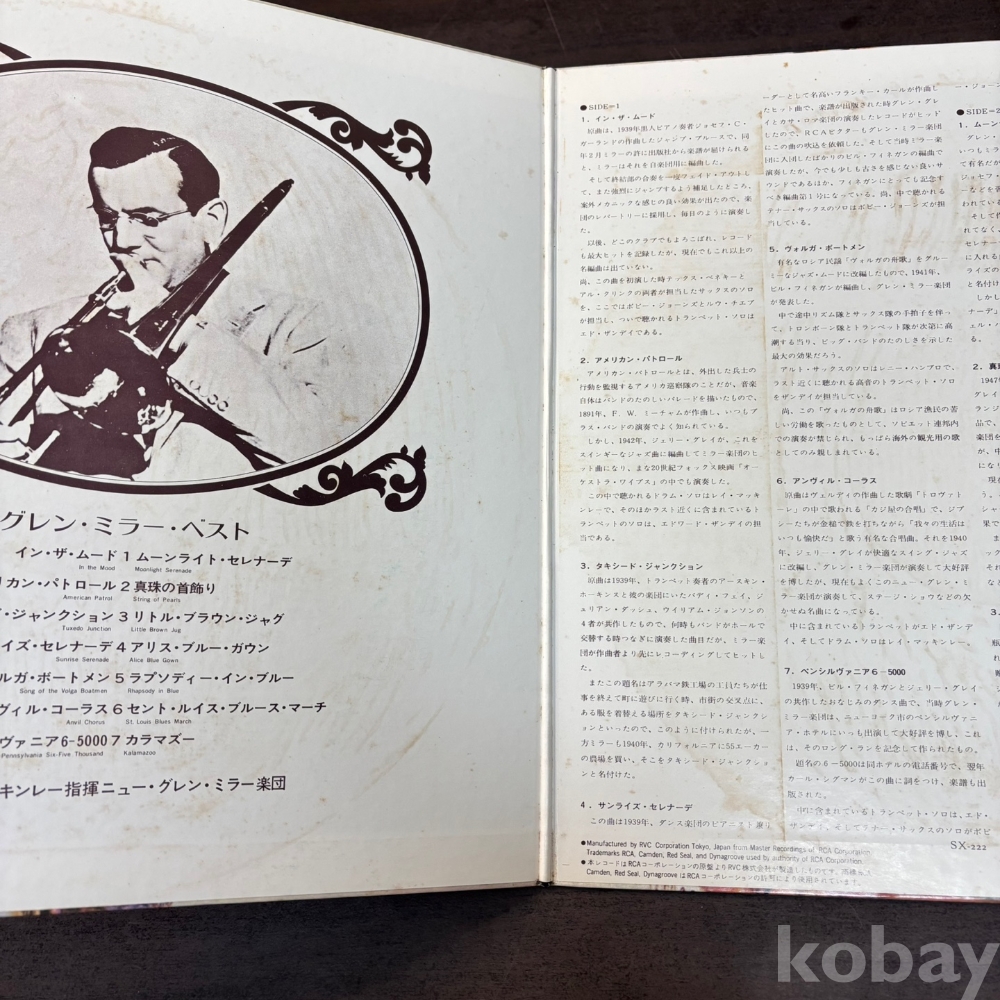 グレン・ミラー・ベスト
イン・ザ・ムード 1 ムーンライト・セレナーデ
In the Mood Moonlight Serenade
リカン・パトロール 2 真珠の首飾り
American Patrol String of Pearls
ジャンクション 3 リトル・ブラウン・ジャグ
Tuxedo Junction Little Brown Jug
イズ・セレナーデ 4 アリス・ブルー・ガウン
Sunrise Serenade Alice Blue Gown
ルガ・ボートメン 5 ラプソディー・イン・ブルー
Song of the Volga Boatman Rhapsody in Blue
ヴィル・コーラス 6 セント・ルイス・ブルース・マーチ
Anvil Chorus St. Louis Blues March
ヴァニア6-5000 7 カラマズー
Pennsylvania Six-Five Thousand Kalamazoo
キンレー指揮ニュー・グレン・ミラー楽団
●SIDE=1
1. イン・ザ・ムード
原曲は、1939年黒人ピアノ奏者ジョセフ・C・
ガーランドの作曲したジャンプ・ブルースで、同
年2月ミラーの許に出版社から楽譜が届けられる
と、ミラーはそれを自楽団用に編曲した。
そして終結部の合奏を一度フェイド・アウトし
て、また強烈にジャンプするよう補足したところ、
案外メカニックな感じの良い効果が出たので、楽
団のレパートリーに採用し、毎日のように演奏し
た。
以後、どこのクラブでもよろこばれ、レコード
も最大ヒットを記録したが、現在でもこれ以上の
名編曲は出ていない。
尚、この曲を初演した時テックス・ベネキーと
アル・クリンクの両者が担当したサックスのソロ
を、ここではボビー・ジョーンズとルウ・ナエブ
が担当し、ついで聴かれるトランペット・ソロは
エド・ザンデイである。
2. アメリカン・パトロール
アメリカン・パトロールとは、外出した兵士の
行動を監視するアメリカ巡察隊のことだが、音楽
自体はバンドのたのしいパレードを描いたもので、
1891年、F.W.ミーチャムが作曲し、いつもブ
ラス・バンドの演奏でよく知られている。
しかし、1942年、ジェリー・グレイが、これを
スインギーなジャズ曲に編曲してミラー楽団のヒ
ット曲になり、また20世紀フォックス映画「オー
ケストラ・ワイブス」の中でも演奏した。
この中で聴かれるドラム・ソロはレイ・マッキ
ンレーで、そのほかラスト近くに含まれているト
ランペットのソロは、エドワード・ザンデイの担
当である。
3. タキシード・ジャンクション
原曲は1939年、トランペット奏者のアースキン・
ホーキンスと彼の楽団にいたバディ・フェイ、ジ
ュリアン・ダッシュ、ウイリアム・ジョンソンの
4者が共作したもので、何時もバンドがホールで
交替する時つなぎに演奏した曲目だが、ミラー楽
団が作曲者より先にレコーディングしてヒットし
た。
またこの題名はアラバマ鉄工場の工員たちが仕
事を終えて町に遊びに行く時、市街の交叉点に、
ある服を着替える場所をタキシード・ジャンクシ
ョンといったので、このように付けられたが、一
方ミラーも1940年、カリフォルニアに55エーカー
の農場を買い、そこをタキシード・ジャンクショ
ンと名付けた。
4. サンライズ・セレナーデ
この曲は1939年、ダンス楽団のピアニスト兼リ
ーダーとして名高いフランキー・カールが作曲し
たヒット曲で、楽譜が出版された時グレン・グレ
イとカサ・ロマ楽団の演奏したレコードがヒット
したので、RCAビクターもグレン・ミラー楽団
にこの曲の吹込を依頼した。そして当時ミラー楽
団に入団したばかりのビル・フィネガンの編曲で
演奏したが、今でも少しも古さを感じない良いサ
ウンドであるほか、フィネガンにとっても記念す
べき編曲第1号になっている。尚、中で聴かれる
テナー・サックスのソロはボビー・ジョーンズが担
当している。
5. ヴォルガ・ボートメン
有名なロシア民謡「ヴォルガの舟歌」をグルー
ミーなジャズ・ムードに改編したもので、1941年、
ビル・フィネガンが編曲し、グレン・ミラー楽団
が発表した。
中で途中リズム隊とサックス隊の手拍子を伴っ
て、トロンボーン隊とトランペット隊が次第に高
潮する当り、ビッグ・バンドのたのしさを示した
最大の効果だろう。
アルト・サックスのソロはレニー・ハンブロで、
ラスト近くに聴かれる高音のトランペット・ソロ
をザンデイが担当している。
尚、この「ヴォルガの舟歌」はロシア漁民の苦
しい労働を歌ったものとして、ソビエット連邦内
での演奏が禁じられ、もっぱら海外の観光用の歌
としてのみ親しまれている。
6. アンヴィル・コーラス
原曲はヴェルディの作曲した歌劇「トロヴァト
ーレ」の中で歌われる「カジ屋の合唱」で、ジプ
シーたちが金槌で鉄を打ちながら「我々の生活は
いつも愉快だ」と歌う有名な合唱曲。それを1940
年、ジェリー・グレイが快適なスイング・ジャズ
に改編し、グレン・ミラー楽団が演奏して大好評
を博したが、現在もよくこのニュー・グレン・ミ
ラー楽団が演奏して、ステージ・ショウなどの欠
かせぬ名曲になっている。
中に含まれているトランペットがエド・ザンデ
イ、そしてドラム・ソロはレイ・マッキンレー。
7. ペンシルヴァニア6-5000
1939年、ビル・フィネガンとジェリー・グレイ
の共作したおなじみのダンス曲で、当時グレン・
ミラー楽団は、ニューヨーク市のペンシルヴァニ
ア・ホテルにいつも出演して大好評を博し、これ
は、そのロング・ランを記念して作られたもの。
題名の6-5000は同ホテルの電話番号で、翌年
カール・シグマンがこの曲に詞をつけ、楽譜も出
版された。
中に含まれているトランペット・ソロは、エド・
ザンデイ、そしてテナー・サックスのソロがボビ
ー・ジョー
●SIDE=2
1. ムーン
いつもミラ
て有名だが
ジョセフ・
われている
2. 真珠
1947
グレイ
ランシ
3.
SX-222
●Manufactured by RVC Corporation Tokyo, Japan from Master Recordings of RCA Corporation.
Trademarks RCA, Camden, Red Seal, and Dynagroove used by authority of RCA Corporation.
●本レコードはRCAコーポレーションの原盤よりRVC株式会社が製造したものです。商標
Camden, Red Seal, Dynagroove はRCAコーポレーションの許可により使用されています。
kobay